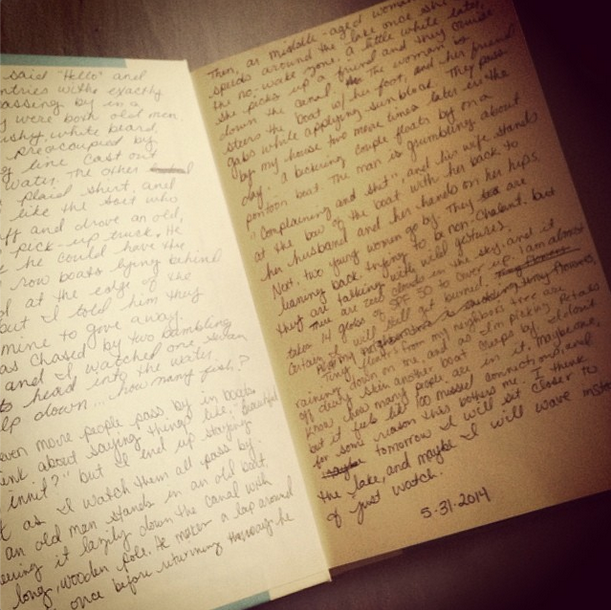 said "Hello" and
entries with exactly
passing by in a
y were both old men.
ushy, white beard,
preoccupied by
g line cast out
water. The other
plaid shirt, and
like the sort who
uff and drove an old,
pick-up truck. He
he could have the
row boats lying behind
d at the edge of the
but I told him they
mine to give away.
as chased by two
and I watched one
to head into the water.
lp down... how many fish?
even more people pass by in boats
ink about saying things like, "beautiful
innit?" but I end up staying
t as I watch them all pass by.
an old man stands in an old boat,
eering it lazily down the canal with
long, wooden pole. He makes a lap around
once before returning the way he
Then, a middle-aged woman
speeds around the lake once she
the no-wake zone. a little while later,
she picks up a friend and they cruise
down the canal. The woman
steers the boat w/ her foot, and her friend
gabs while applying sunblock. They pass
by my house two more times later in the
day. A bickering couple floats by on a
pontoon boat. The man is grumbling about
"complaining and shit", and his wife stands
at the bow of the boat with her back to
her husband and her hands on her hips.
Next, two young women go by. They are
leaning back trying to be non chalant but
they are talking with wild gestures.
There are zero clouds in the sky, and it
takes 14 globs of SPF 50 to cover up. I am almost
certain I will still get burned.
Tiny flowers,
from my neighbors tree are
raining down on me, and as I'm picking petals
off dewy skin another boat creeps by. I don't
know how many people are in it. Maybe one,
but it feels like a missed connection, and
for some reason this bothers me. I think
tomorrow I will sit closer to
the lake, and maybe I will wave instead
of just watch.
5-31-2014